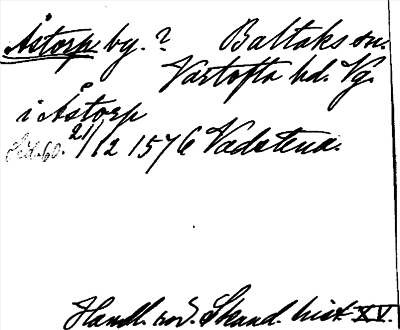 Åstorp by. ? Baltaks sn.
Vartofta hd. Vg.
i Åstorp
21/12 1576 Vadstena.
Handl. rör. Skand. hist XV.